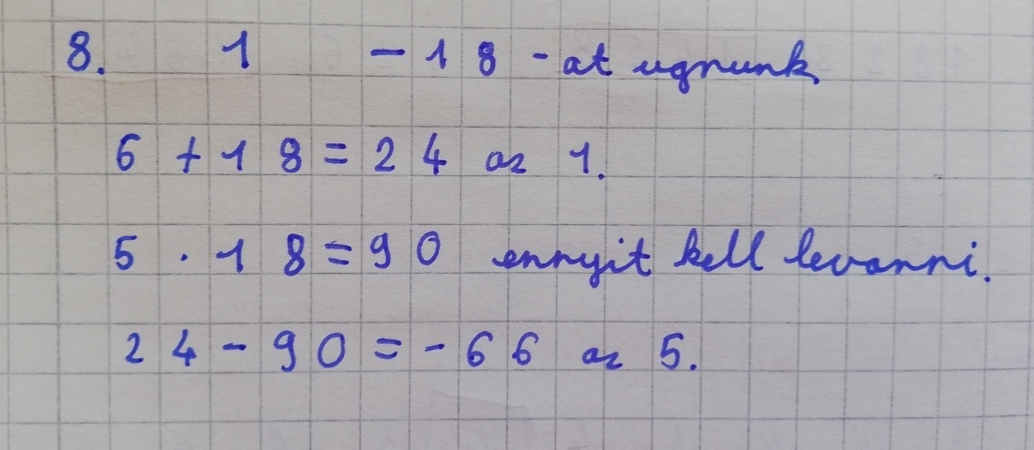 8. 1 -18-at ugrunk.
6 + 18 = 24 az 1.
5 · 18 = 90 ennyit kell levonni.
24 - 90 = -66 az 5.